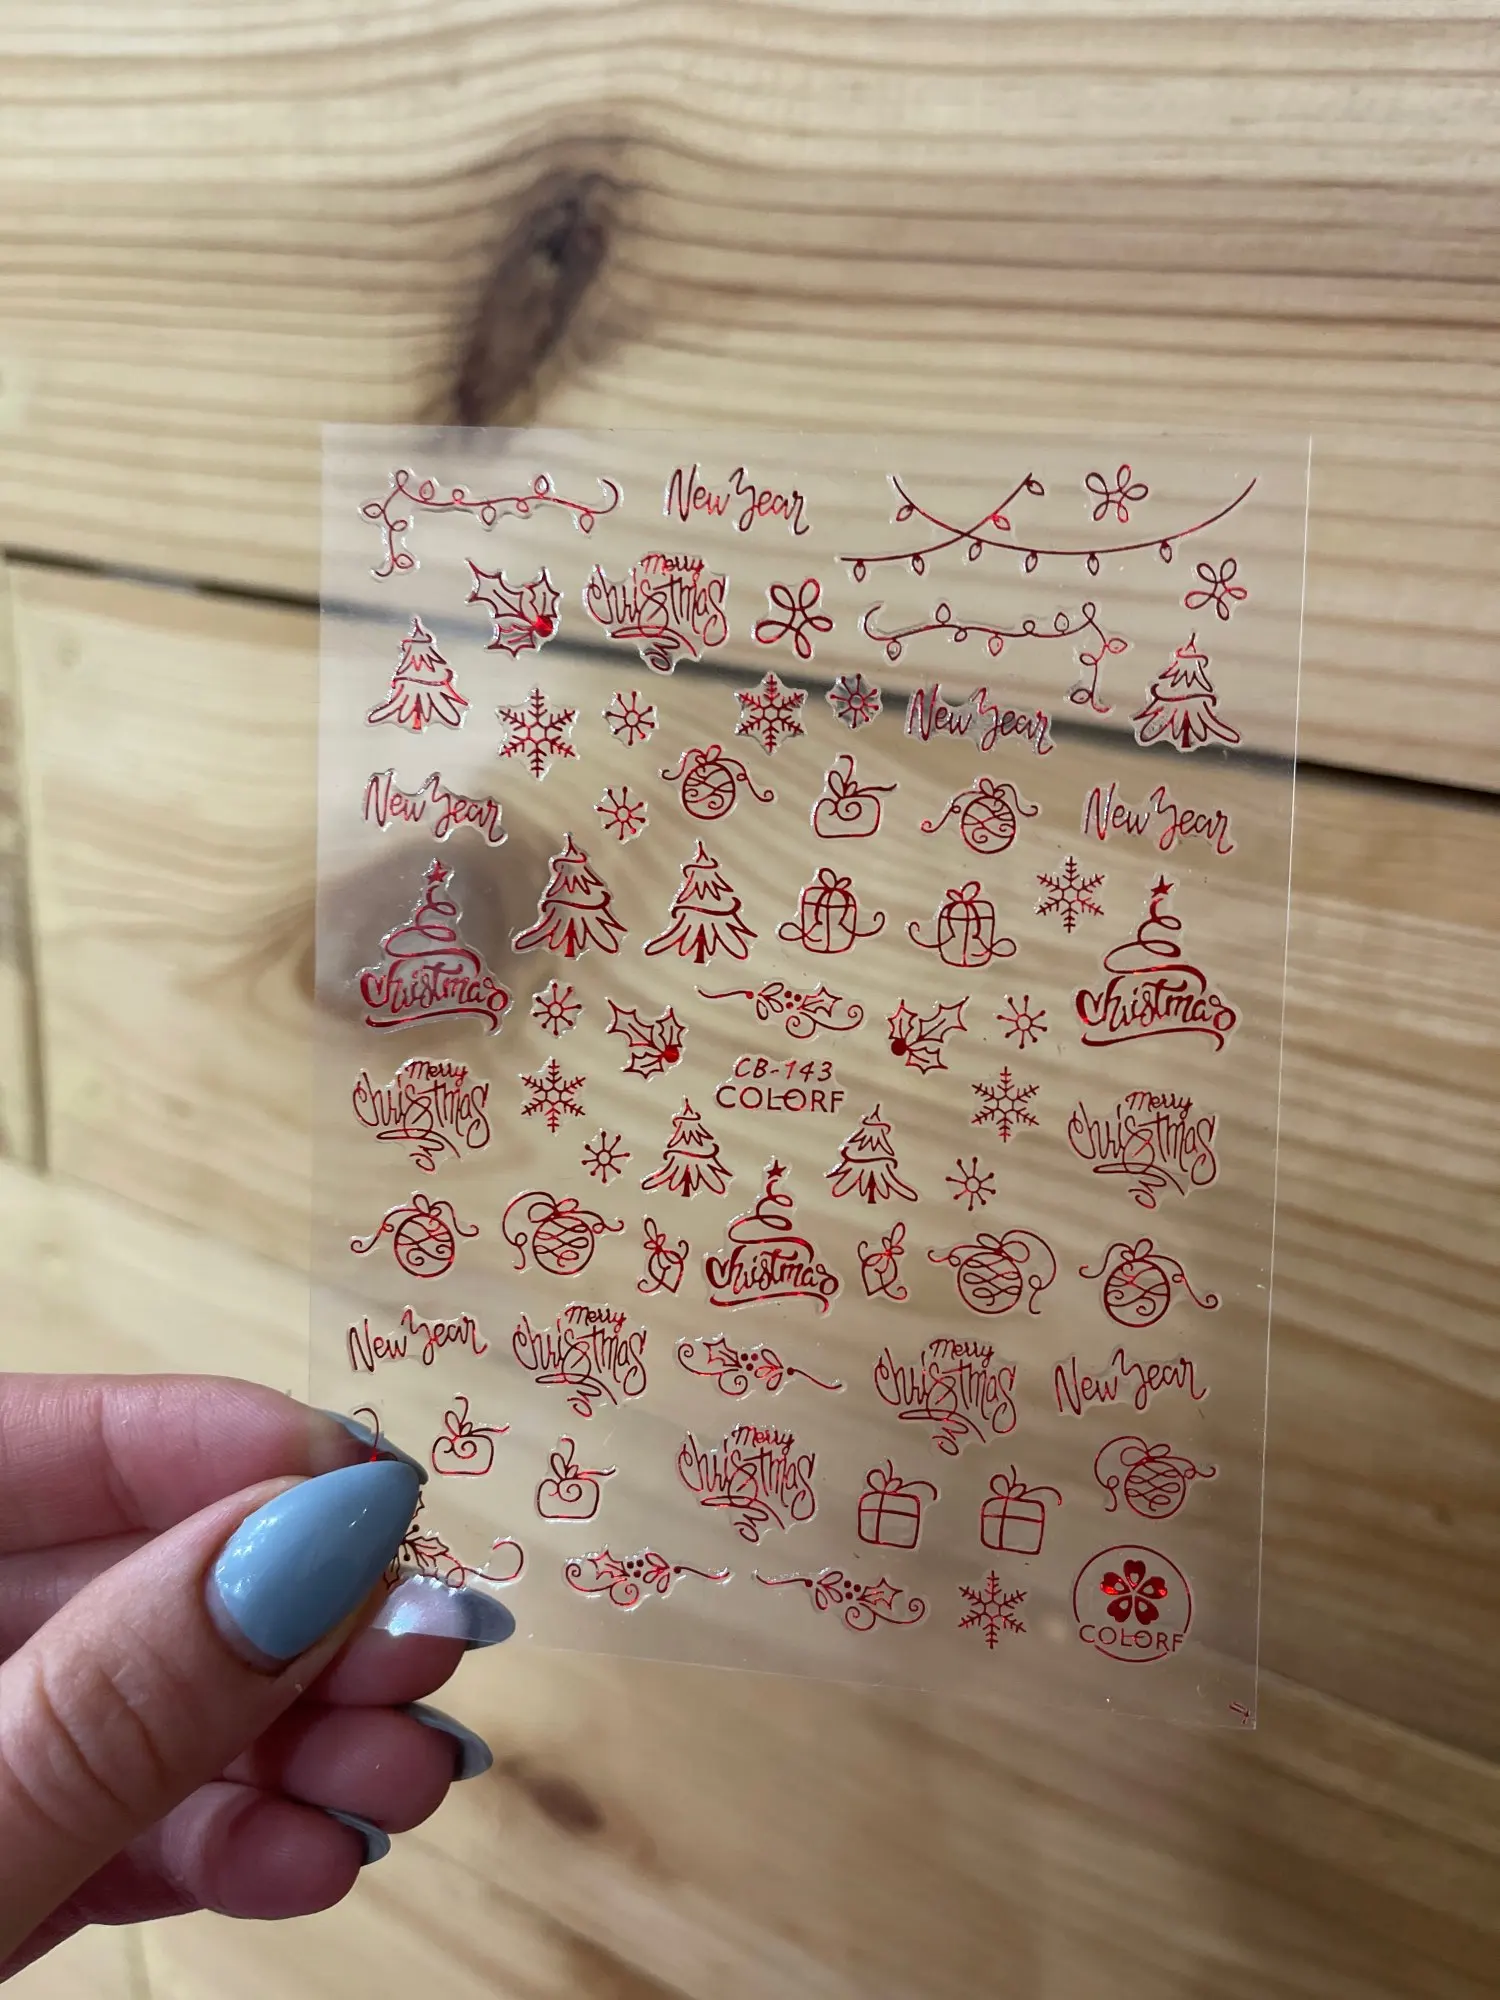 New Year
Merry
Christmas
New Year
New Year
New Year
Christmas
Christmas
CB-143
COLORF
Merry
Christmas
Merry
Christmas
Christmas
New Year
Merry
Christmas
Merry
Christmas
New Year
Merry
Christmas
COLORF